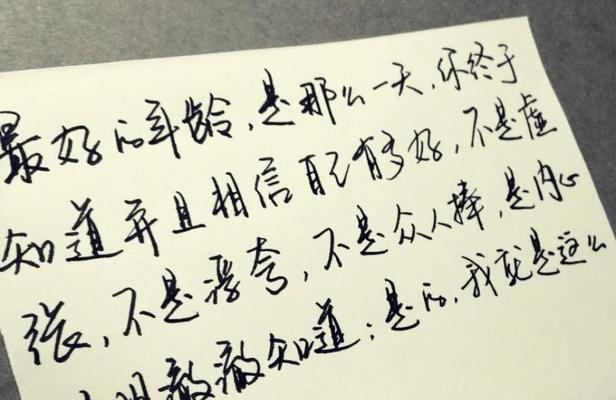 最好的年龄，是那么一天，你终于
知道并且相信自己有多好，不是虚
张，不是浮夸，不是众人捧，是内心
明澈澈知道：是的，我就是这么